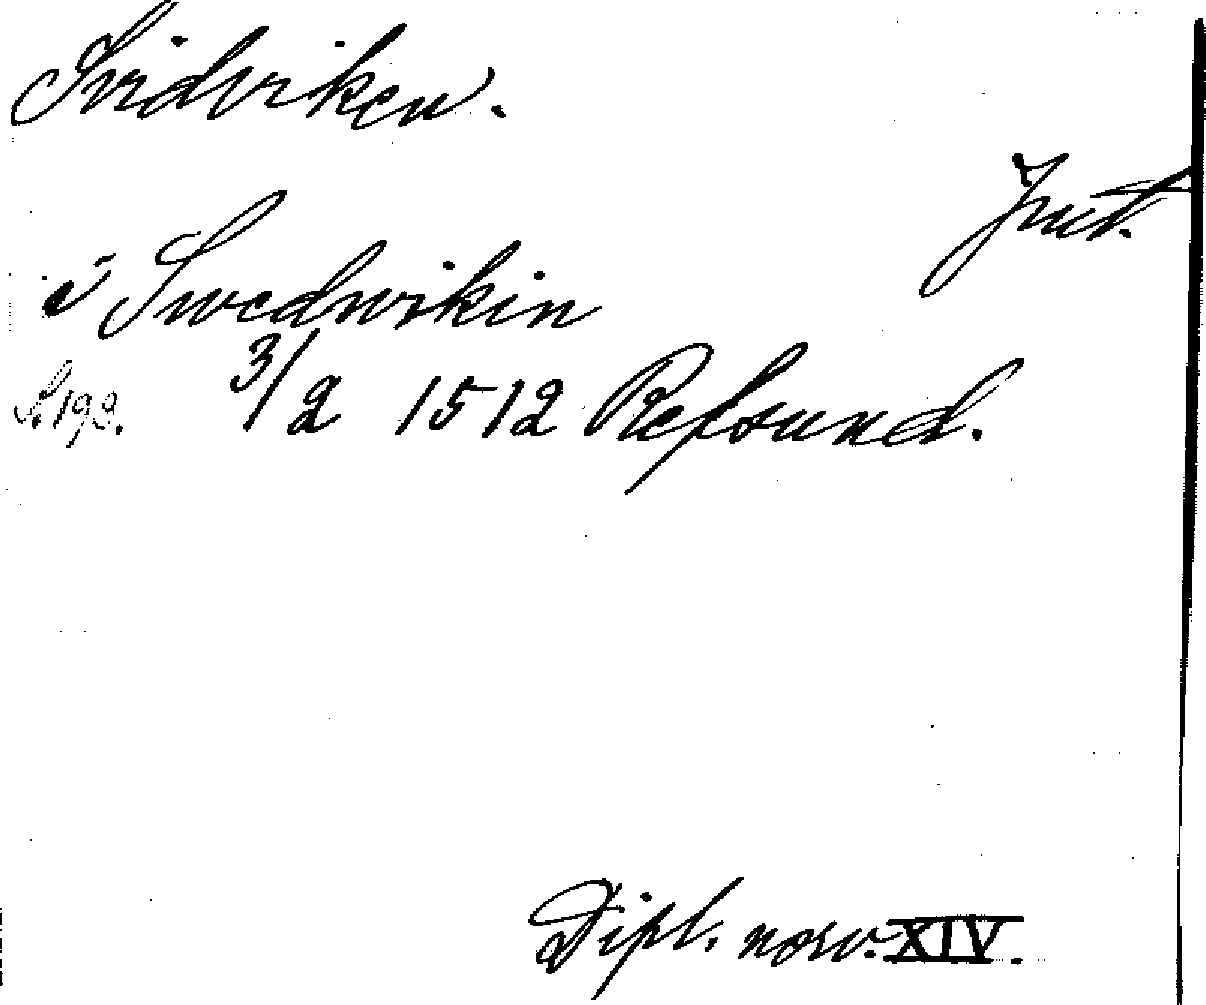 Svidviken.
Jmt.
i Swedwikin
S. 198. 3/2 1512 Refsund.
Dipl. norv. XIV.